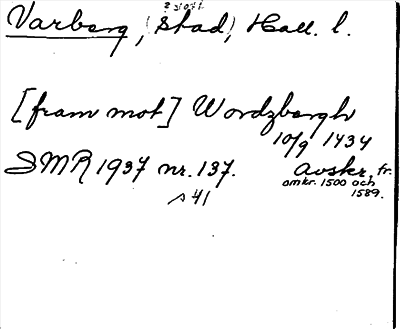 Varberg, (Stad), Hall. l.
[fram mot] Wordzbergh
10/9 1434
SMR 1937 nr. 137. Avskr. fr.
omkr. 1500 och
1589.
s 41